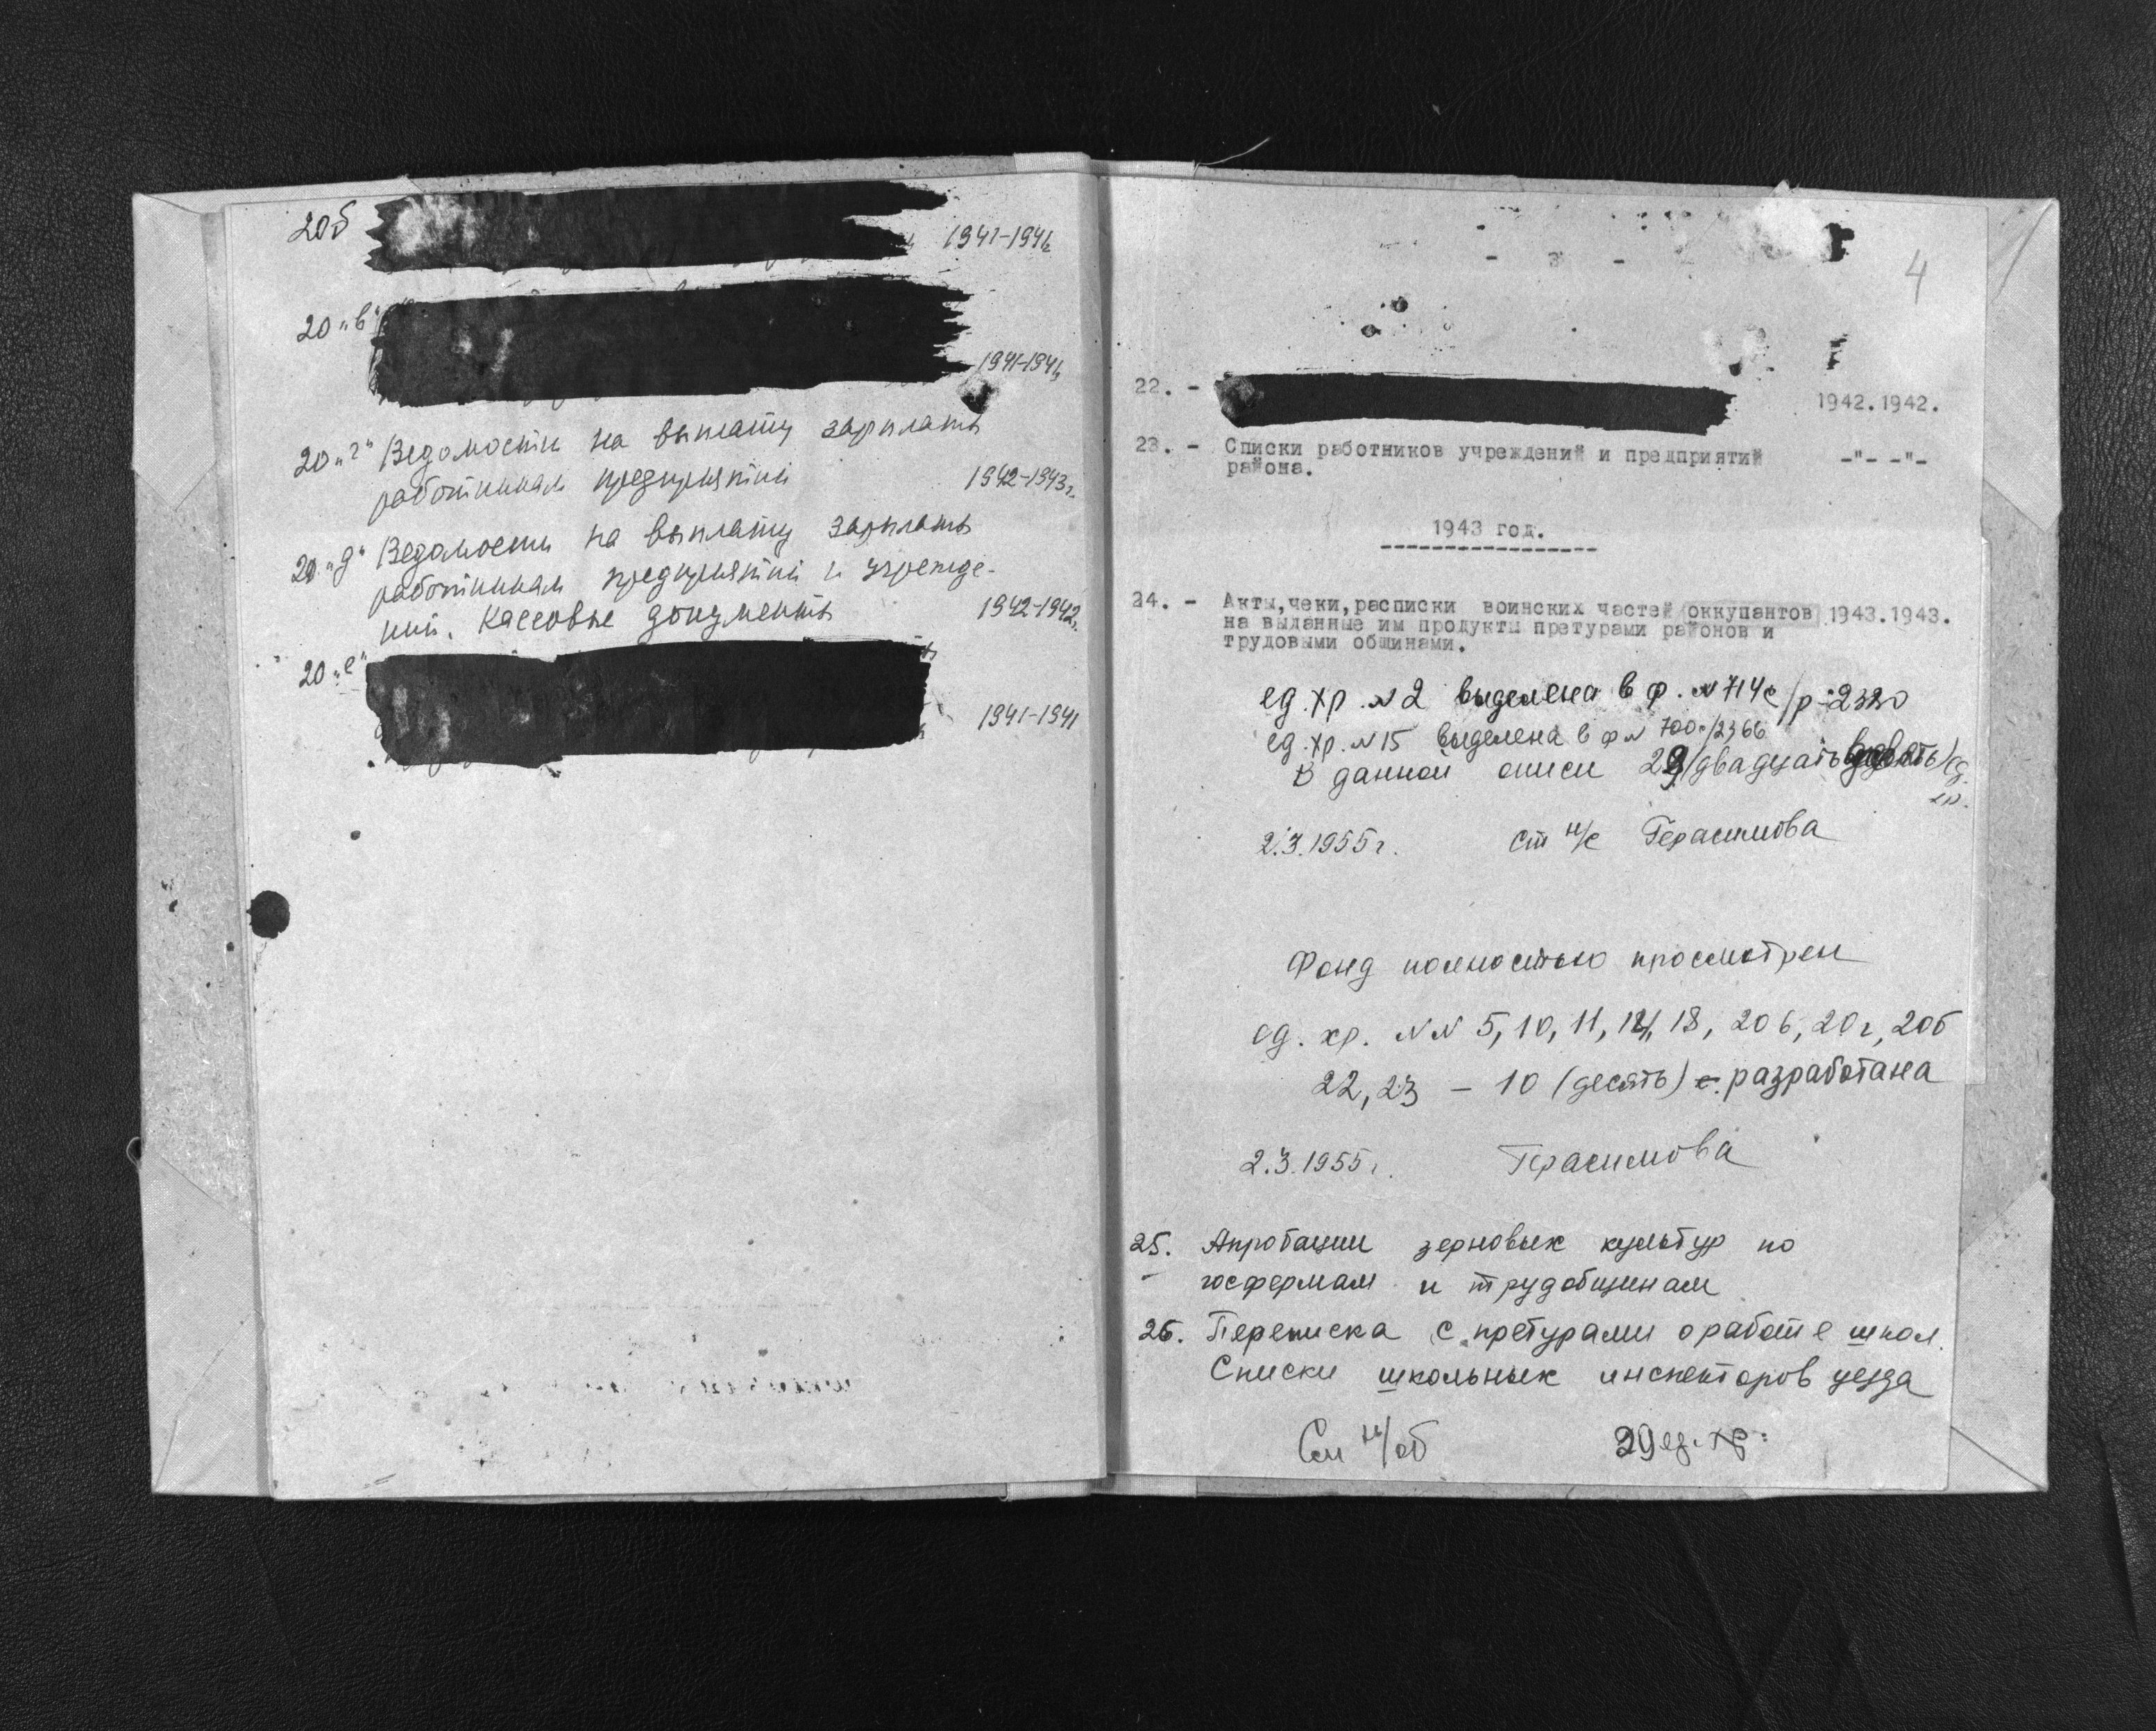 20б 1941-1941
20 "в"
1941-1941
20 "г" Ведомости на выплату зарплаты
работникам предприятий 1942-1943г.
20 "д" Ведомости на выплату зарплаты
работникам предприятий и учрежде-
ний. Кассовые документы 1942-1942г.
20 "е"
1941-1941
- 3 -
4
22. - 1942.1942.
23. - Списки работников учреждений и предприятий -"- -"-
района.
1943 год.
24. - Акты,чеки,расписки воинских частей оккупантов 1943.1943.
на выданные им продукты претурами районов и
трудовыми общинами.
ед. хр. №2 выделена в ф. №714с/р-2320
ед. хр. №15 выделена в ф № 700с/2366
В данной описи 29/двадцать девять/ед.
хр.
2.3.1955г. Ст н/с Герасимова
Фонд полностью просмотрен
ед. хр. NN 5, 10, 11, 14, 18, 20в, 20г, 20б
22, 23 - 10 (десять) разработана
2.3.1955г. Герасимова
25. Апробации зерновых культур по
госфермам и трудобщинам
26. Переписка с претурами о работе школ.
Списки школьных инспекторов уезда
См н/об 29 ед. хр.